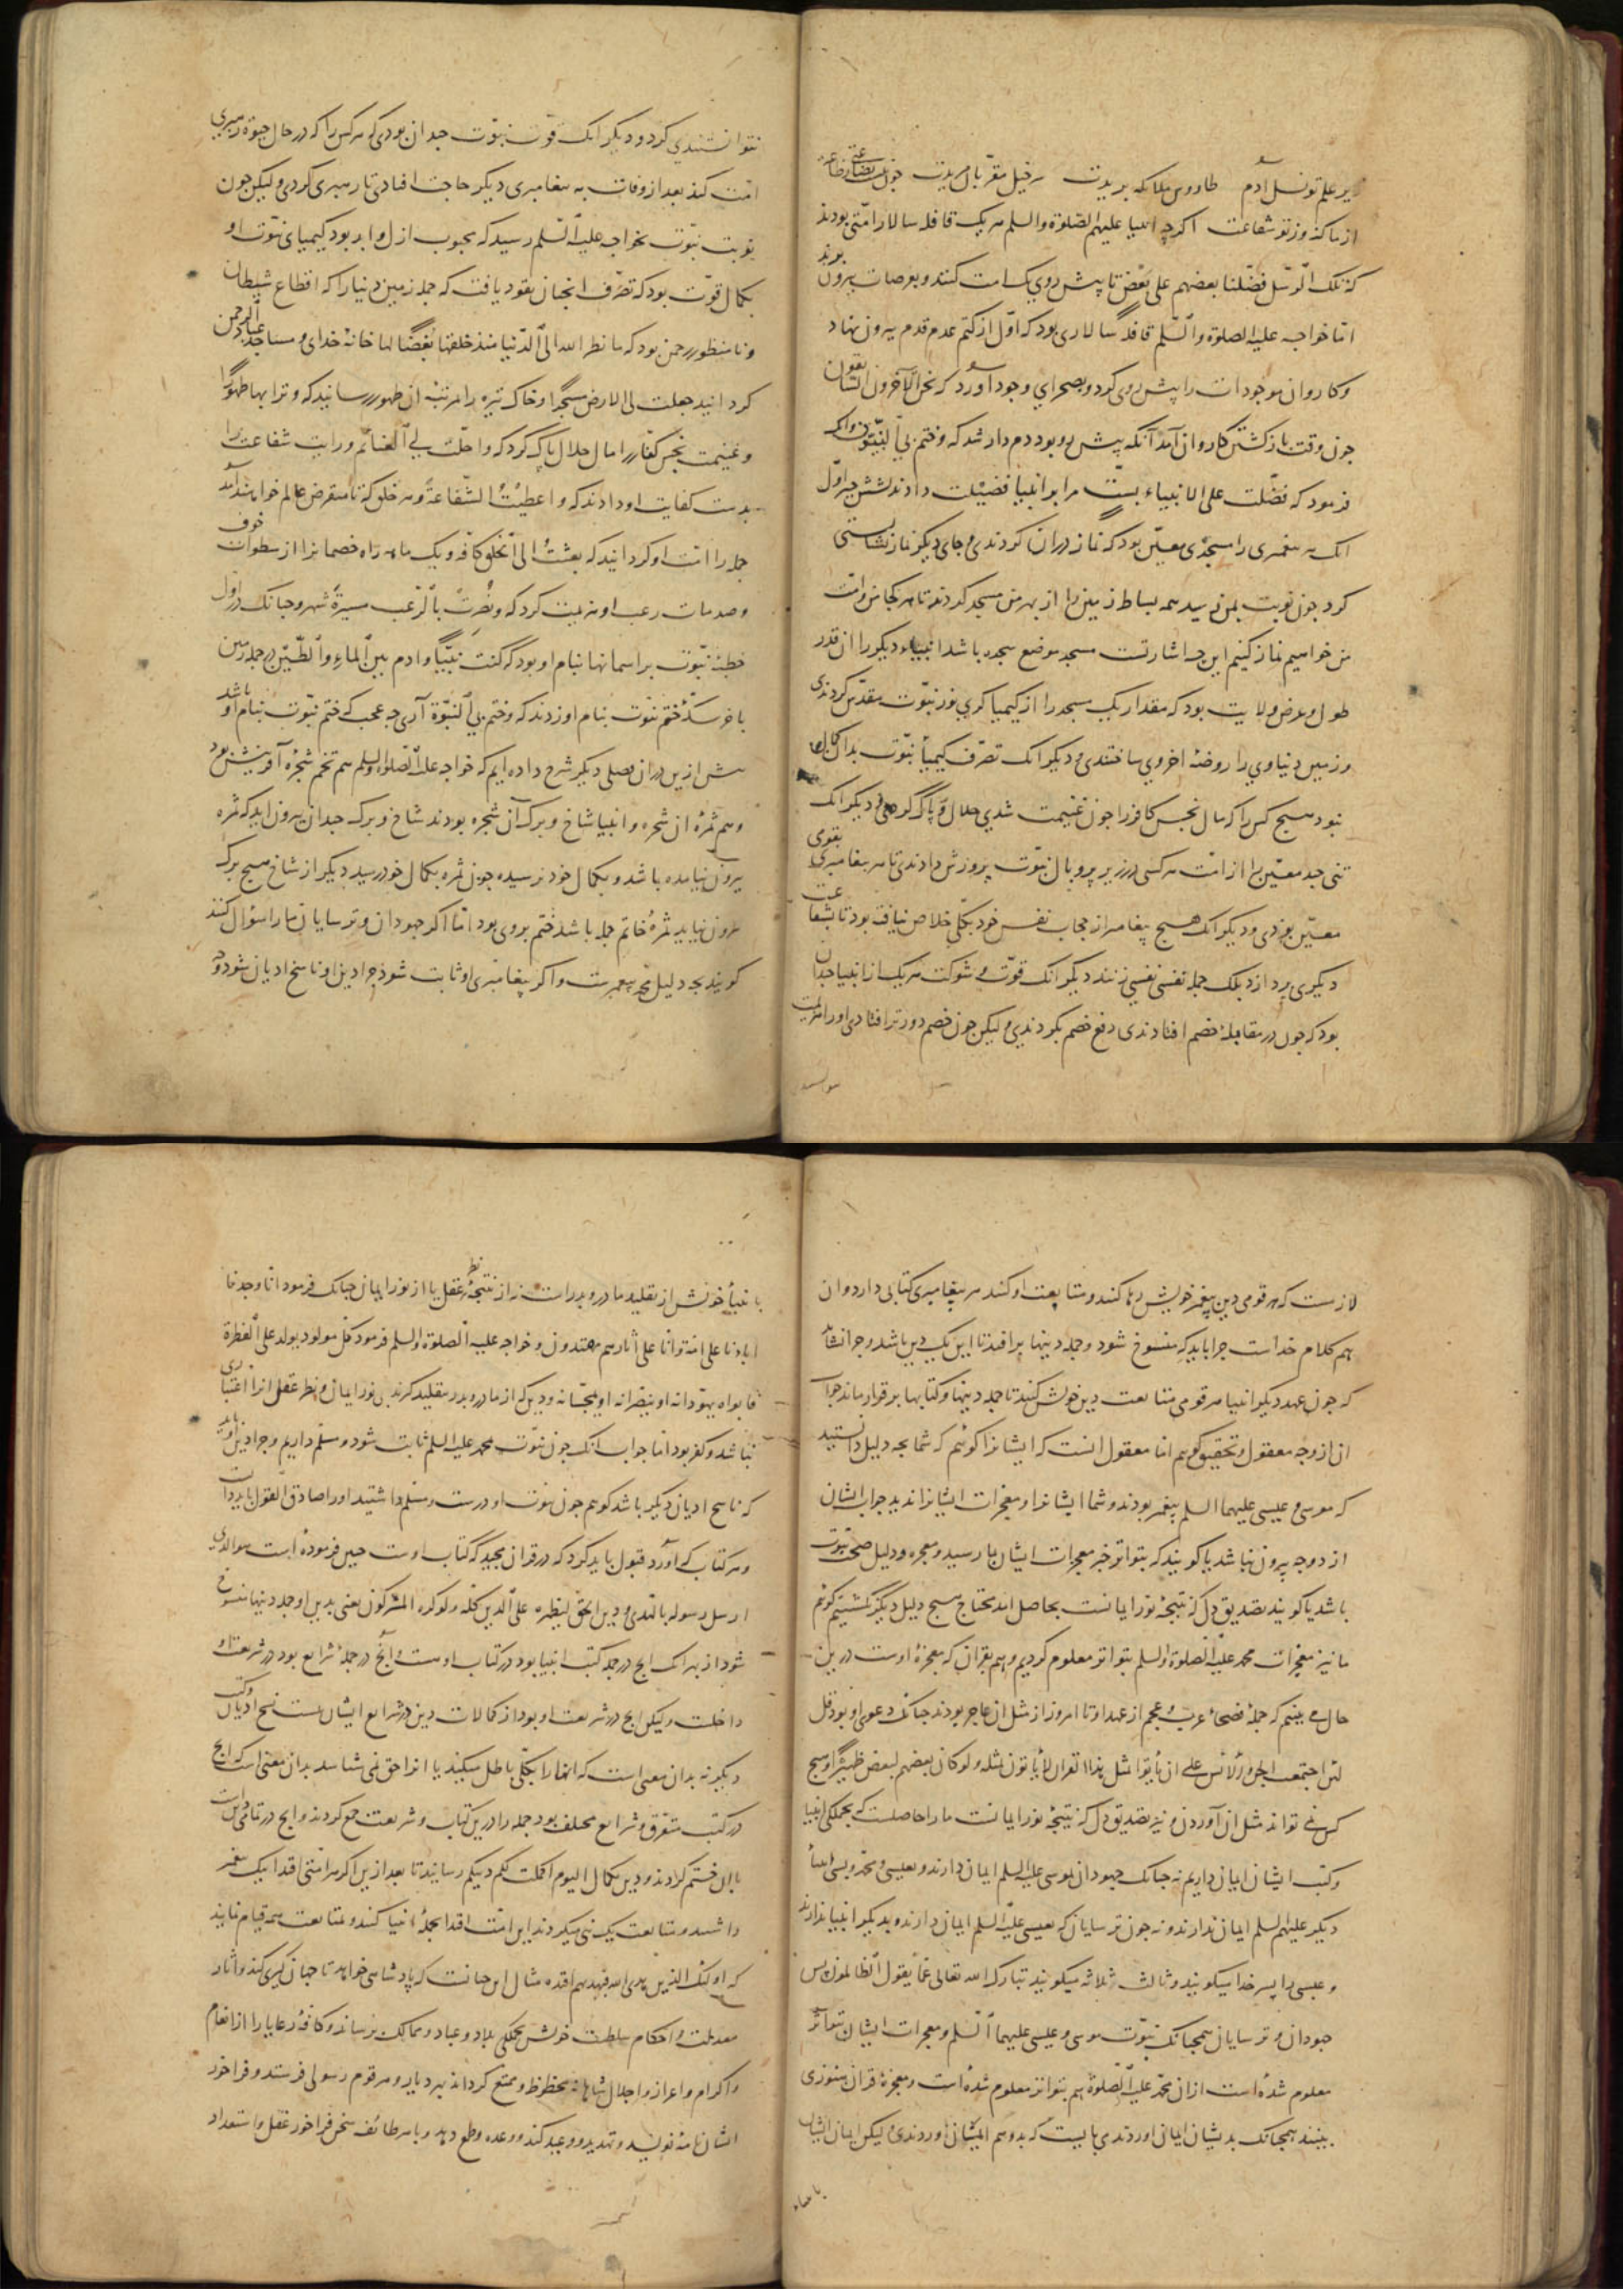 بر علم تو نسل آدم طاووس ملائکه بریدت سرخیل مقربان مریدت چون نیست بضاعتی ز طاعت
از ما گنه وز تو شفاعت اکرچه انبیا علیهم الصلوة والسلم هریک قافله سالار امتی بودند
که تلک الرسل فضلنا بعضهم علی بعض تا پیش روی یک امت کنند و بعرصات بیرون برند
اما خواجه علیه الصلوة والسلم قافله سالاری بود که اول از کتم عدم قدم بیرون نهاد
و کاروان موجودات را پیش روی کرد و بصحرای وجود آورد که نحن الآخرون السابقون
جون وقت بازکشتن کاروان آمد آنکه پیش رو بود دم دار شد که وختم بی النبیون وانک
فرمود که فضلت علی الانبیاء بست مرا بر انبیا فضیلت دادند بشش جیز اول
انک هر پیغمبری را مسجدی معین بود که نماز در ان کردندی و جای دیکر نماز نشایستی
کرد جون نوبت بمن رسید همه بساط زمین را از بهر من مسجد کردند تا هر کجا من و امت
من خواهیم نماز کنیم این جه اشارتست مسجد موضع سجده باشد انبیاء دیکر را ان قدر
طول و عرض ولایت بود که مقدار یک مسجد را از کیمیا کری نور نبوت مقدس کردندی
و زمین دنیاوی را روضهٔ اخروی ساختندی و دیکر انک تصرف کیمیاء نبوت بدان کمال
نبود هیج کس را که مال نجس کافر را جون غنیمت شدی حلال و پاک کردی و دیکر انک
تنی جند معین را از امت هر کسی در زیر پر و بال نبوت پرورش دادندی تا هر پیغامبری بقومی
معین بودی و دیکر انک هیج پیغامبر از حجاب نفس خود بکلی خلاص نیافته بود تا بشفاعت
دیکری پردازد بلک جمله نفسی نفسی زنند دیکر انک قوت و شوکت هریک از انبیا جندان
بود که جون در مقابلهٔ خصم افتادندی دفع خصم بکردندی ولیکن جون خصم دورتر افتادی او را هزیمت
نتوانستندی کرد و دیکر انک قوت نبوت جندان بودی که هر کس را که در حال حیوة رهبری
امت کند بعد از وفات به پیغامبری دیکر حاجت افتادی تا رهبری کردی ولیکن جون
نوبت نبوت بخواجه علیه السلم رسید که محبوب ازل و ابد بود کیمیای نبوت او
بکمال قوت بود که تصرف انجنان بقود یافت که جمله زمین دنیا را که اقطاع شیطان
ونا منظور رحمن بود که ما نظر الله الی الدنیا منذ خلقها بغضا لها خانهٔ خدای و مساجد عباد الرحمن
کردانید جعلت لی الارض مسجدا و خاک تیره را مرتبهٔ آن طهور رسانید که وترابها طهورا
و غنیمت نجس کفار را مال حلال پاک کرد که واحلت لی الغنائم و رایت شفاعت را
بدست کفایت او دادند که واعطیت الشفاعة و هر خلق که تا منقرض عالم خواهند آمد
جمله را امت او کردانید که بعثت الی الخلق کافة و یک ماهه راه خصمانرا از سطوات خوف
و صدمات رعب او هزیمت کرد که ونصرت بالرعب مسیرة شهر و جنانک در اول
خطبهٔ نبوت بر اسمانها بنام او بود که کنت نبیا وادم بین الماء والطین در جمله زمین
باخر سکهٔ ختم نبوت بنام او زدند که وختم بی النبوة آری جه عجب که ختم نبوت بنام او باشد
پیش ازین در ان فصلی دیکر شرح داده ایم که خواجه علیه الصلوة والسلم هم تخم شجرهٔ آفرینش بود
و هم ثمرهٔ ان شجره و انبیا شاخ و برک آن شجره بودند شاخ و برک جندان بیرون اید که ثمره
بیرون نیامده باشد و بکمال خود نرسیده جون ثمره بکمال خود رسید دیکر از شاخ هیج برک
بیرون نیاید ثمرهٔ خاتم جمله باشد ختم بروی بود اما اکر جهودان و ترسایان ما را سؤال کنند
کویند بجه دلیل محمد پیغمبرست و اکر پیغامبری او ثابت شود جرا دین او ناسخ ادیان شود و جه
لازمست که هر قومی دین پیغمبر خویش رها کنند و متابعت او کنند هر پیغامبری کتابی دارد و ان
هم کلام خداست جرا باید که منسوخ شود و جمله دینها برافتد تا این یک دین باشد و جرا نشاید
که جون عهد دیکر انبیا هر قومی متابعت دین خویش کنند تا جمله دینها و کتابها برقرار بماند جواب
ان از وجه معقول و تحقیق کوییم اما معقول انست که ایشانرا کوئیم که شما بجه دلیل دانستید
که موسی و عیسی علیهما السلم پیغمبر بودند و شما ایشانرا و معجزات ایشانرا ندیدید جواب ایشان
از دو وجه بیرون نباشد یا کویند که بتواتر خبر معجزات ایشان بما رسید و معجزه دلیل صحت نبوت
باشد یا کویند تصدیق دل که نتیجهٔ نور ایمانست بحاصل امد محتاج هیج دلیل دیکر نکشتیم کوئیم
ما نیز معجزات محمد علیه الصلوة والسلم بتواتر معلوم کردیم و هم بقران که معجزهٔ اوست درین
حال می بینیم که جملهٔ فصحاء عرب و عجم از عهد او تا امروز از مثل ان عاجز بودند جنانک دعوی او بود قل
لئن اجتمعت الجن والانس علی ان یأتوا بمثل هذا القران لا یأتون بمثله ولو کان بعضهم لبعض ظهیرا و هیج
کس نمی تواند مثل ان آوردن و نیز تصدیق دل که نتیجهٔ نور ایمانست ما را حاصلست که بجملکی انبیا
و کتب ایشان ایمان داریم نه جنانک جهودان بموسی علیه السلم ایمان دارند و بعیسی و محمد و بسی انبیاء
دیکر علیهم السلم ایمان ندارند و نه جون ترسایان که بعیسی علیه السلم ایمان دارند و بدیکر انبیا ندارند
و عیسی را پسر خدا میکویند و ثالث ثلاثه میکویند تبارک الله تعالی عما یقول الظالمون پس
جهودان و ترسایان همجنانک نبوت موسی و عیسی علیهما السلم و معجزات ایشان بتواتر
معلوم شده است از ان محمد علیه الصلوة هم بتواتر معلوم شده است و معجزهٔ قران هنوز می
بینند همجنانک بدیشان ایمان اوردندی بایست که بدو هم ایمان اوردندی لیکن ایمان ایشان
بانبیاء
بانبیاء خویش از تقلید مادر و پدرست نه از نتیجهٔ نظر عقل یا از نور ایمان جنانک فرمود انا وجدنا
اباءنا علی امة وانا علی آثارهم مهتدون و خواجه علیه الصلوة والسلم فرمود کل مولود یولد علی الفطرة
فابواه یهودانه او ینصرانه او یمجسانه و دین که از مادر و پدر بتقلید کرند بی نور ایمان و نظر عقل انرا اعتباری
نباشد و کفر بود اما جواب انک جون نبوت محمد علیه السلم ثابت شود و مسلم داریم و جرا دین او باید
که ناسخ ادیان دیکر باشد کوییم جون نبوت او درست و مسلم داشتید او را صادق القول باید دانست
و هر کتاب که آورد قبول باید کرد که در قران مجید که کتاب اوست جنین فرموده است هو الذی
ارسل رسوله بالهدی ودین الحق لیظهره علی الدین کله ولو کره المشرکون یعنی بدین او جمله دینها منسوخ
شود از بهر انک انج در جمله کتب انبیا بود در کتاب اوست و آنج در جملهٔ شرایع بود در شریعت او
داخلست ولیکن انج در شریعت او بود از کمالات دین در شرایع ایشان نیست نسخ ادیان و کتب
دیکر نه بدان معنی است که انها را بکلی باطل میکنند یا انرا حق نمی شناسد بدان معنی است که انج
در کتب متفرق و شرایع مختلف بود جمله را درین کتاب و شریعت جمع کردند و انج در تمامی دین بایست
بدان ختم کردند و دین بکمال الیوم اکملت لکم دینکم رسانید تا بعد ازین اکر هر امتی اقدا بیک پیغمبر
داشتند و متابعت یک نبی میکردند این امت اقدا بجملهٔ انبیا کنند و بمتابعت همه قیام نمایند
که اولئک الذین هدی الله فبهدیهم اقتده مثال این جنانست که پادشاهی خواهد تا جهان کیری کند و آثار
معدلت و احکام سلطنت خویش بجملکی بلاد و عباد و ممالک برساند و کافهٔ رعایا را از انعام
و اکرام و اعزاز و اجلال شاهانه محظوظ و ممتع کرداند بهر دیار و هر قوم رسولی فرستد و فراخور
ایشان نامهٔ نویسد و تهدید و وعید کند و وعده و طمع دهد و با هر طائفه سخن فراخور عقل و استعداد